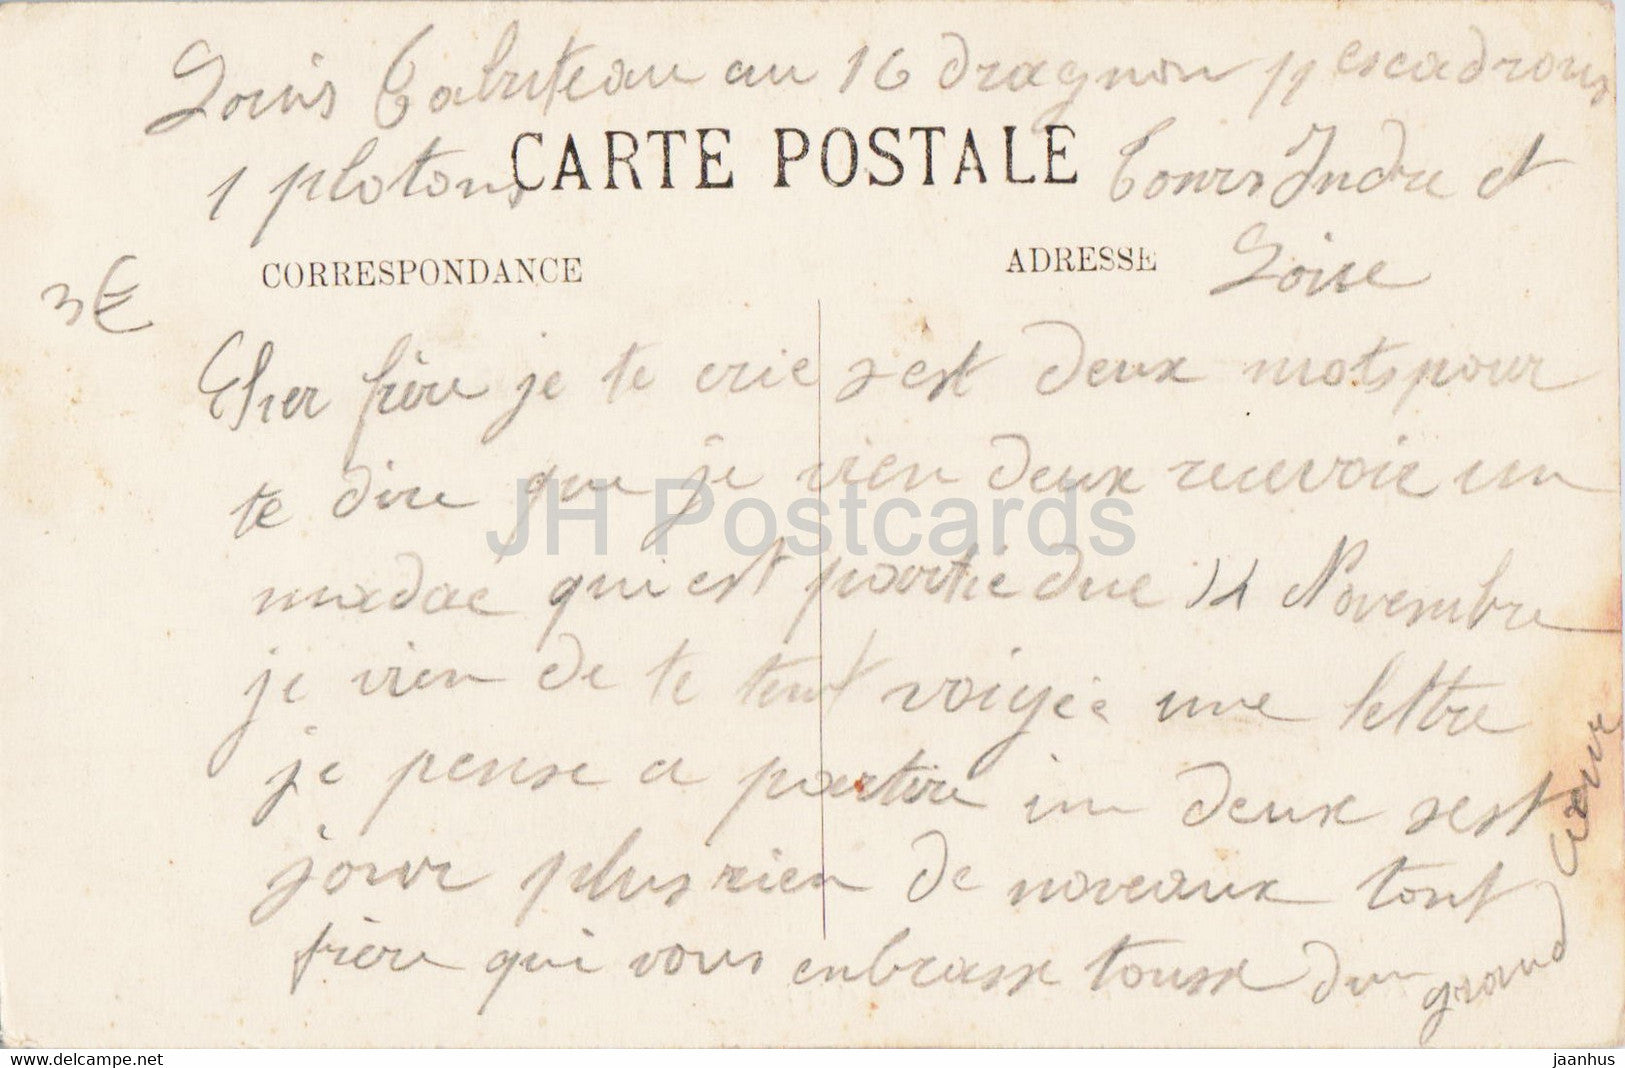 Louis Cabuteau au 16 dragnon 11 escadrons
1 plotons CARTE POSTALE Tours Indre et
Loire
CORRESPONDANCE ADRESSE
3€
Cher frère je te crie sest deux mots pour
te dire que je vien deux recevoir un
madae qui est partie due 11 Novembre
je vien de te tent voigée une lettre
je pense a partire in deux sest
jour plus rien de noveaux tont
frère qui vous enbrasse tousse dun grand
cœur
JH Postcards
www.delcampe.net
jaanhus